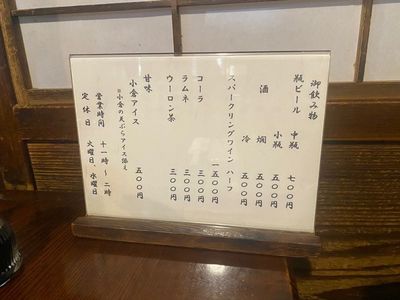 御飲み物
瓶ビール 中瓶 七〇〇円
小瓶 五〇〇円
酒 燗 五〇〇円
冷 五〇〇円
スパークリングワイン ハーフ 一五〇〇円
コーラ 三〇〇円
ラムネ 三〇〇円
ウーロン茶 三〇〇円
甘味
小倉アイス 五〇〇円
※小倉の天ぷらアイス添え
営業時間 十一時〜二時
定休日 火曜日、水曜日